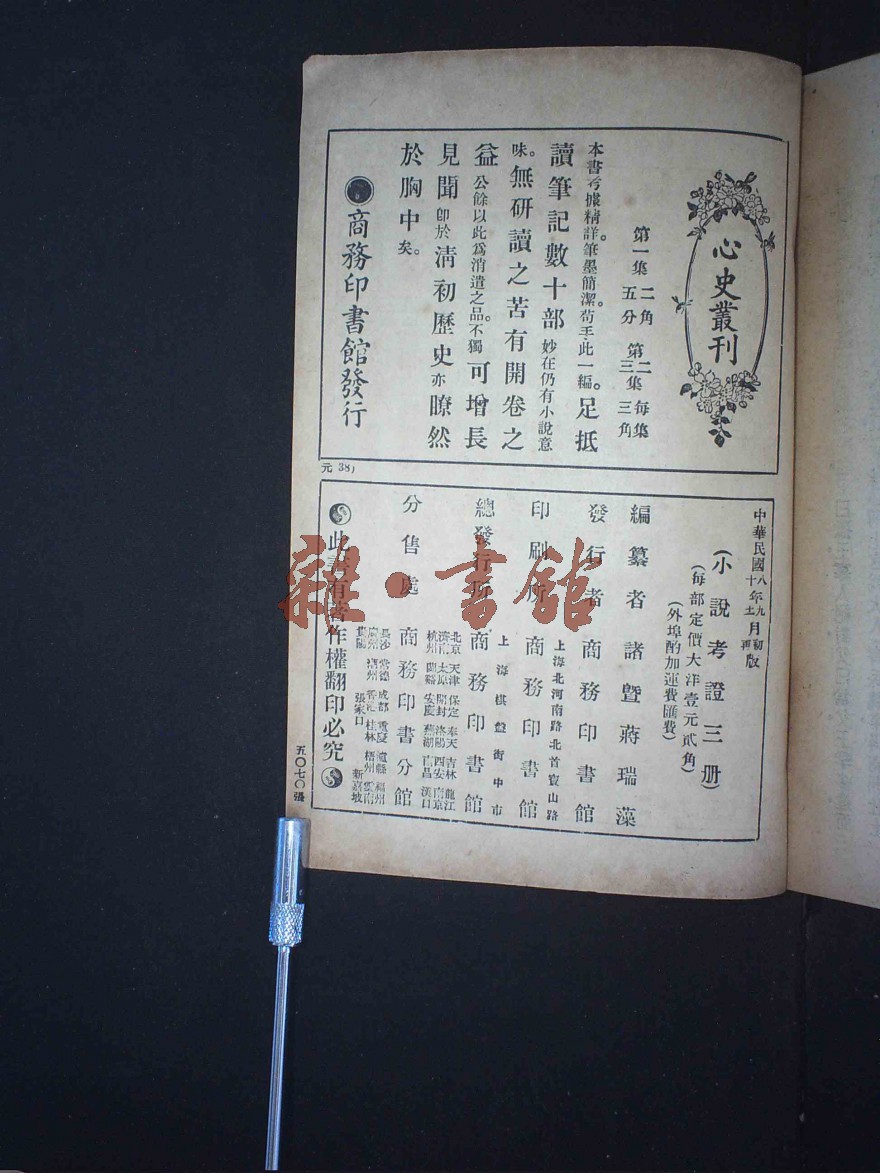 心史叢刊
第一集 二角五分 第二三集 每集三角
本書考據精詳。筆墨簡潔。苟手此一編。足抵
讀筆記數十部妙在仍有小說意
味。無研讀之苦有開卷之
益公餘以此爲消遣之品。不獨可增長
見聞卽於清初歷史亦瞭然
於胸中矣。
商務印書館發行
元 38)
中華民國八年九月初版
(小說考證三册)
(每部定價大洋壹元貳角)
(外埠酌加運費匯費)
編纂者 諸暨蔣瑞藻
發行者 商務印書館
上海北河南路北首寶山路
印刷所 商務印書館
上海棋盤街中市
總發行所 商務印書館
北京 天津 保定 奉天 吉林 龍江
濟南 太原 開封 洛陽 西安 南京
杭州 蘭谿 安慶 蕪湖 南昌 漢口
分售處 商務印書分館
長沙 常德 成都 重慶 瀘縣 福州
廣州 潮州 香港 桂林 梧州 雲南
貴陽 張家口 新嘉坡
此書有著作權翻印必究
五〇七〇張
雜·書館